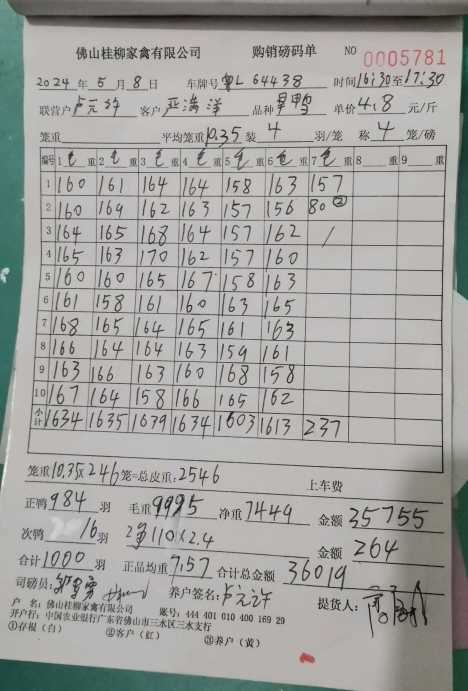 佛山桂柳家禽有限公司 购销磅码单 NO 0005781
2024年5月8日 车牌号 粤L64438 时间16:30至17:30
联营户 卢元许 客户 品种 旱鸭 单价4.8元/斤
笼重 平均笼重10.35 装4羽/笼 称4笼/磅
编号 1毛重 2毛重 3毛重 4毛重 5毛重 6毛重 7毛重 8重 9重
1 160 161 164 164 158 163 157
2 160 169 162 163 157 156 80②
3 164 165 168 164 157 162 /
4 165 163 170 162 157 160
5 160 160 165 167 158 163
6 161 158 161 160 163 165
7 168 165 164 165 161 163
8 166 164 164 163 159 161
9 163 166 163 160 168 158
10 167 164 158 166 165 162
小计 1634 1635 1679 1634 1603 1613 237
笼重10.35x246笼=总皮重:2546 上车费
正鸭984羽 毛重9995 净重7449 金额35755
次鸭16羽 净110x2.4 金额264
合计1000羽 正品均重7.57 合计总金额36019
司磅员: 养户签名:卢元许 提货人:
户 名:佛山桂柳家禽有限公司 账号:444 401 010 400 169 29
开户行:中国农业银行广东省佛山市三水区三水支行
①存根(白) ②客户(红) ③养户(黄)